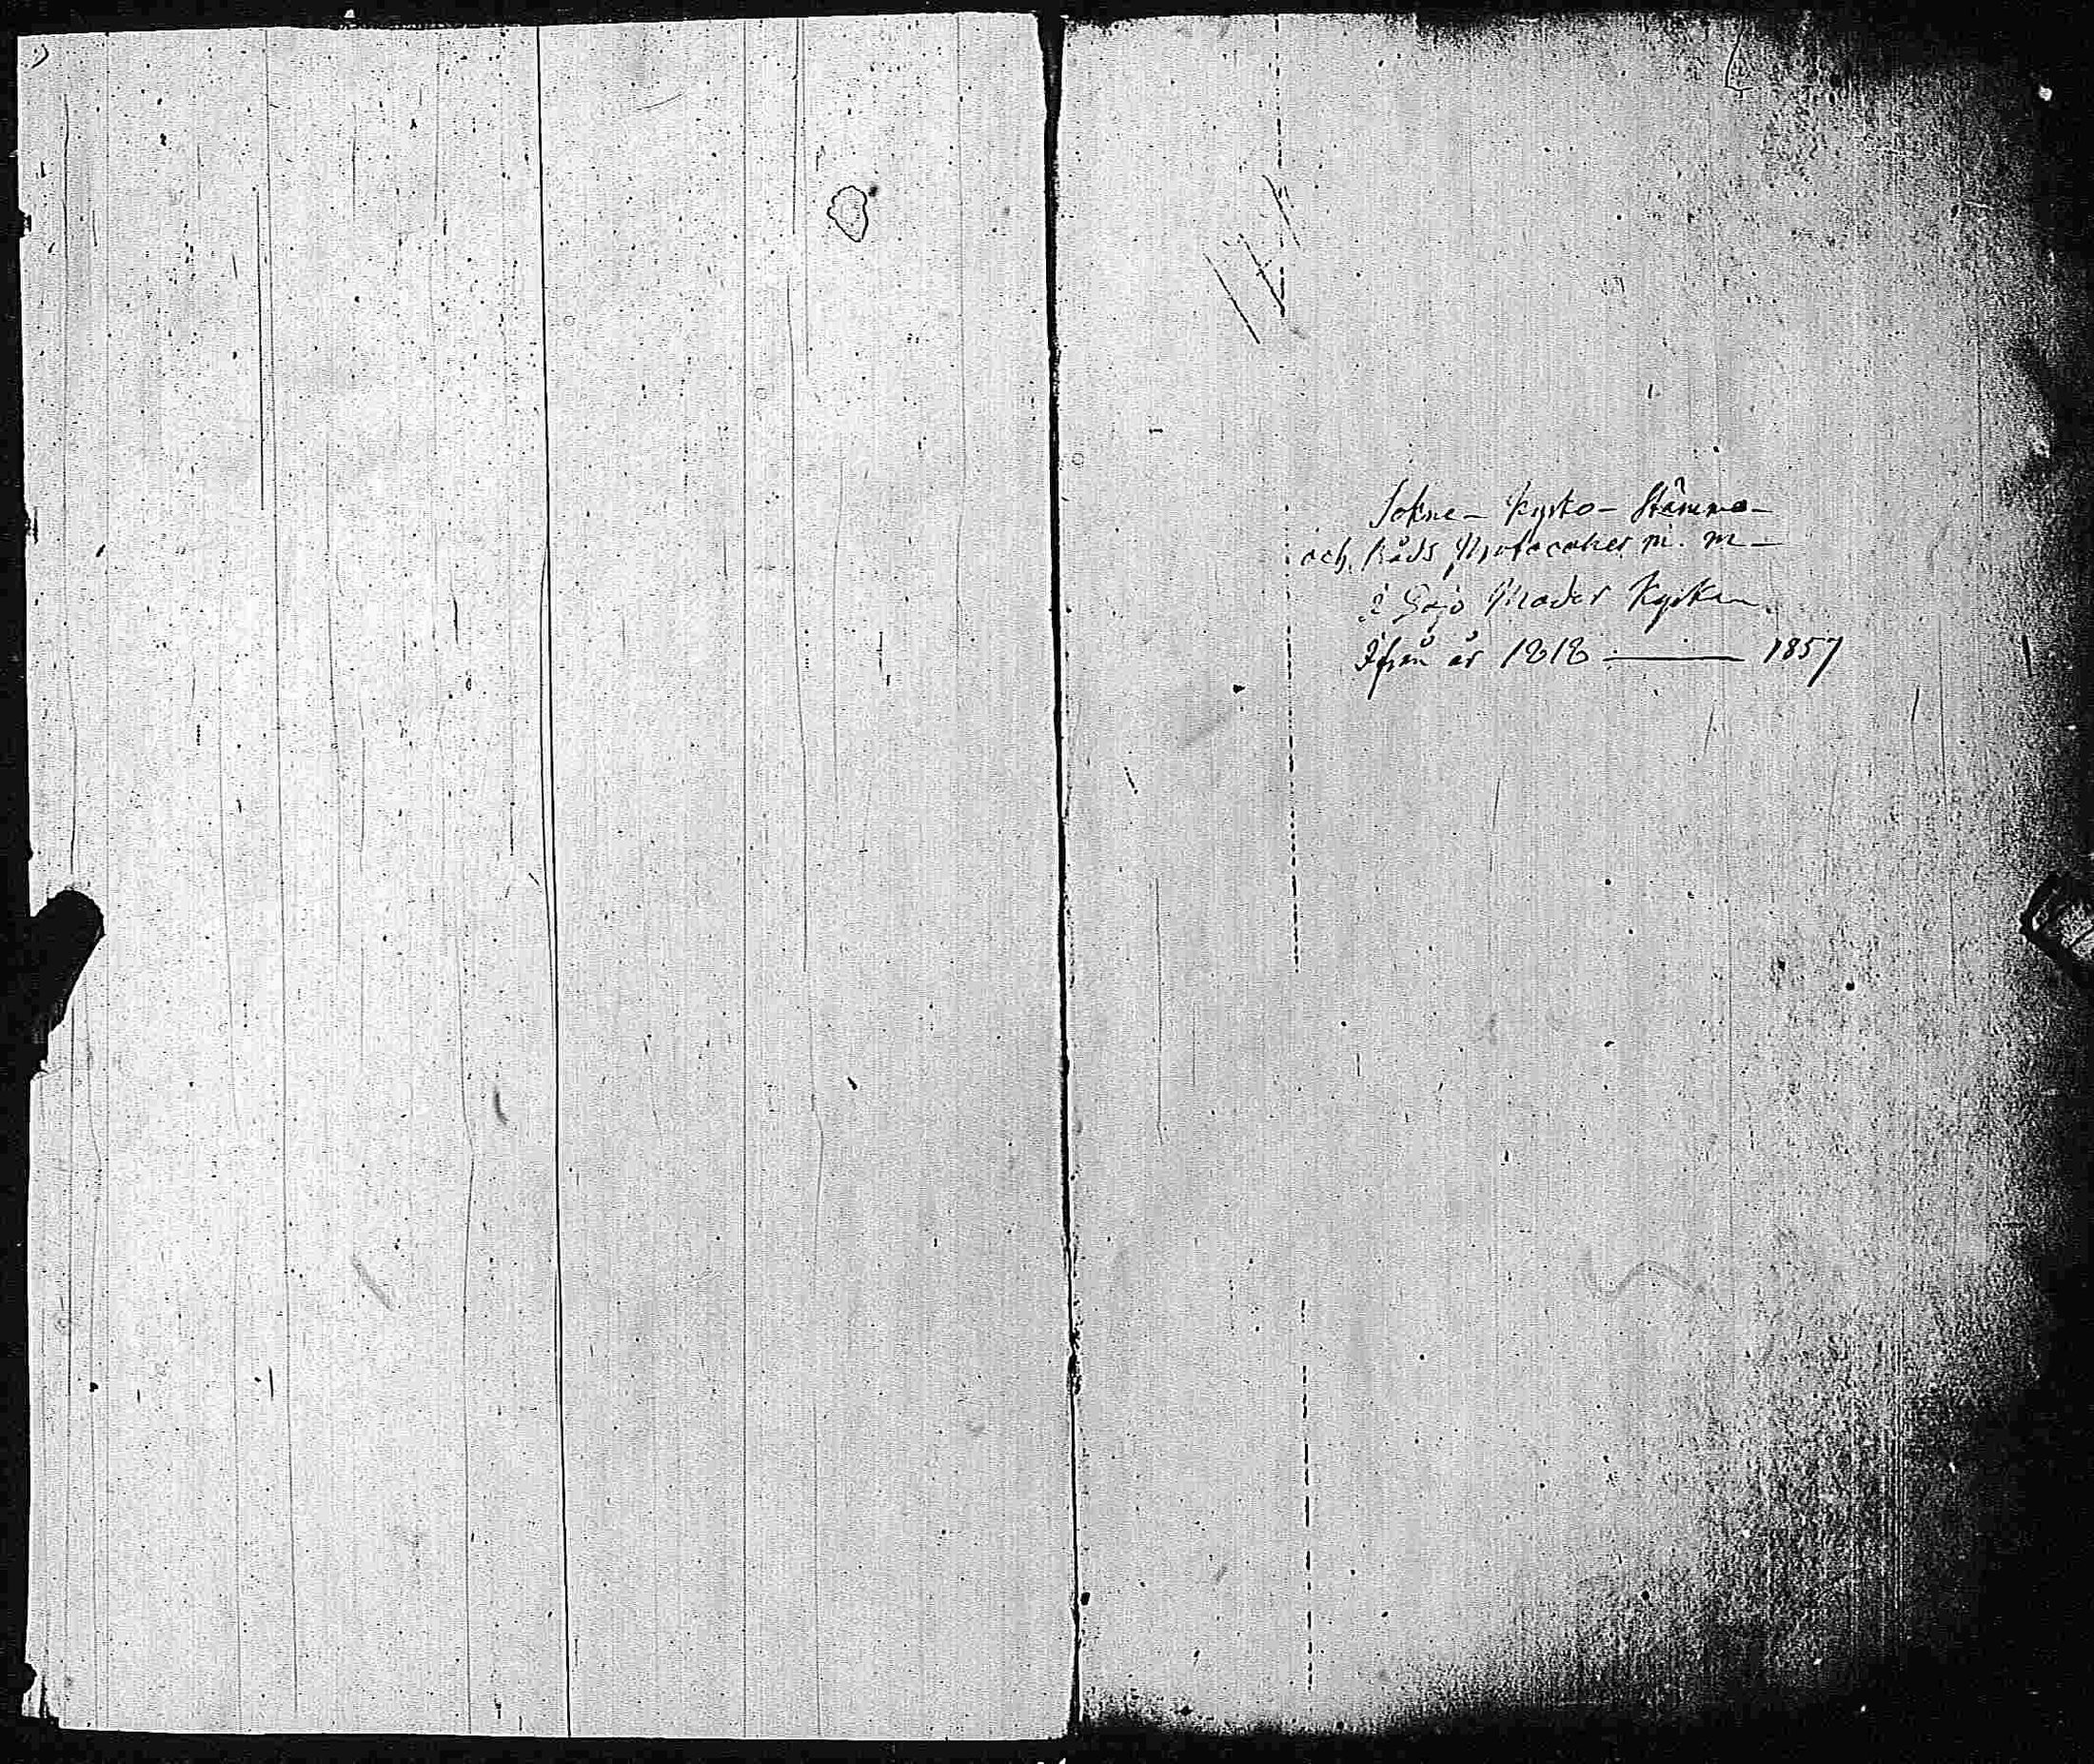 Sokne- Kyrko- Stämmo-
och Råds Protocoller m. m-
i Moder Kyrkan
Ifrån år 1818 ——— 1857